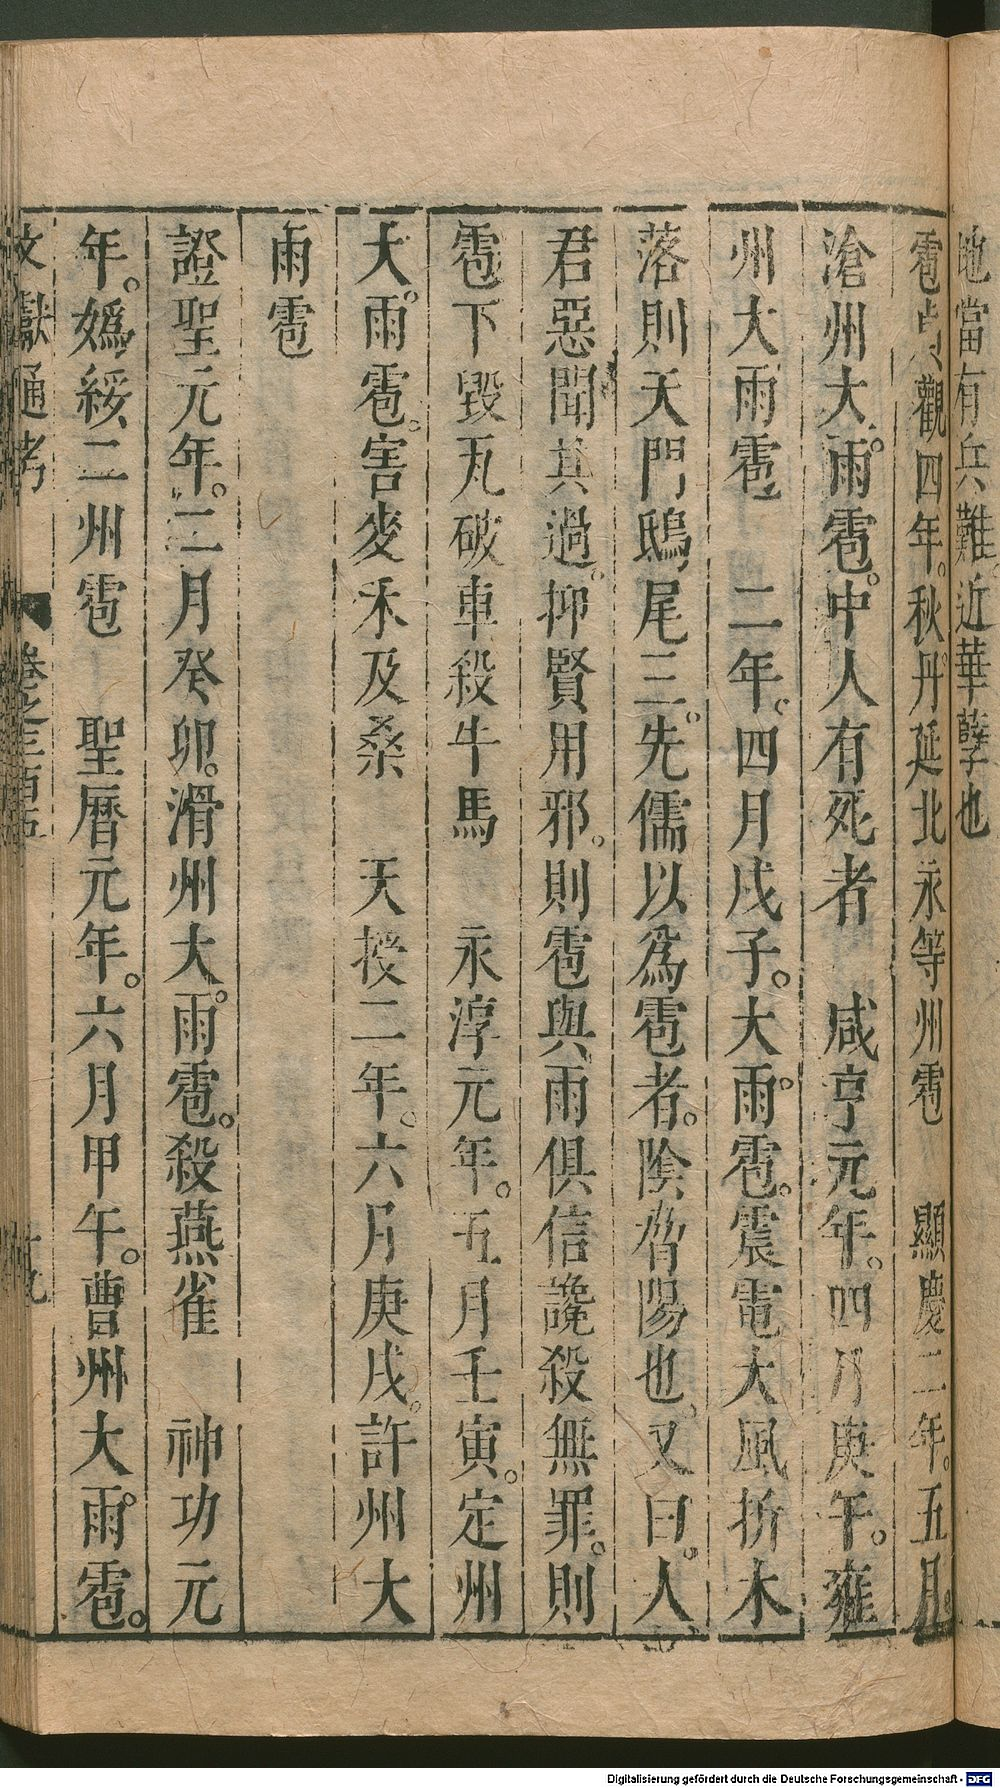 地當有兵難。近華孽也
雹貞觀四年。秋丹延北永等州雹　顯慶二年。五月
滄州大雨雹。中人有死者　咸亨元年。四月庚午。雍
州大雨雹　二年。四月戊子。大雨雹。震電大風折木
落則天門鴟尾三。先儒以爲雹者。陰脅陽也。又曰。人
君惡聞其過。抑賢用邪。則雹與雨俱信讒殺無罪。則
雹下毀瓦破車殺牛馬　永淳元年。五月壬寅。定州
大雨雹。害麥禾及桑　天授二年。六月庚戌。許州大
雨雹
證聖元年。二月癸卯。滑州大雨雹。殺燕雀　神功元
年。嬀綏二州雹　聖曆元年。六月甲午。曹州大雨雹。
文獻通考　卷之三百五　十九
Digitalisierung gefördert durch die Deutsche Forschungsgemeinschaft - DFG